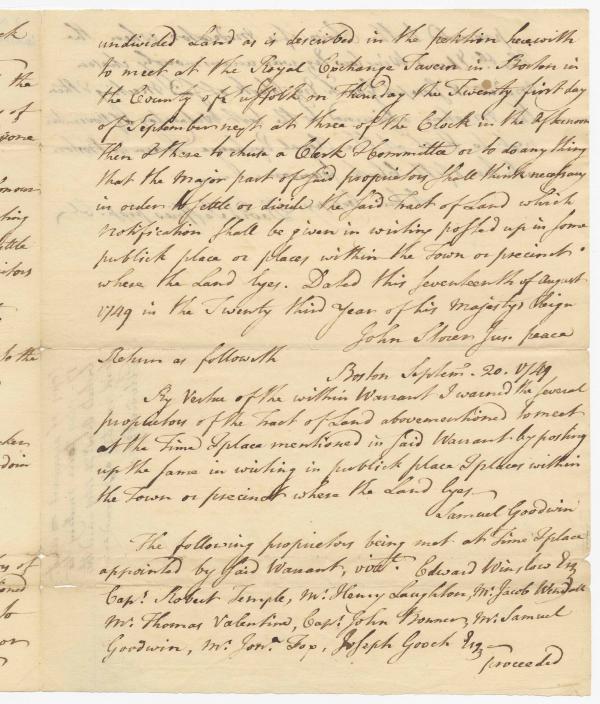 undivided Land as is described in the petition herewith
to meet at the Royal Exchange Tavern in Boston in
the County of Suffolk on Thursday the Twenty first day
of September next at three of the Clock in the Afternoon
Then & there to chuse a Clerk & Committee or to do any thing
that the Major part of said proprietors shall think necessary
in order to settle or divide the said Tract of Land which
notification shall be given in writing posted up in some
publick place or places within the Town or precinct
where the Land Lyes. Dated this Seventeenth of August
1749 in the Twenty third Year of his Majestys Reign
John Storer Jus. peace
Return as followeth
Boston Septem. 20. 1749
By Vertue of the within Warrant I warned the several
proprietors of the Tract of Land abovementioned to meet
at the Time & place mentioned in said Warrant. By posting
up the same in writing in publick place & places within
the Town or precinct where the Land Lyes
Samuel Goodwin
The following proprietors being met at Time & place
appointed by said Warrant, vizt. Edward Winslow Esq
Capt. Robert Temple, Mr. Henry Laughton, Mr. Jacob Wendell
Mr. Thomas Valentine, Capt. John Bonner, Mr. Samuel
Goodwin, Mr. Jona. Fox, Joseph Gooch Esq
proceeded